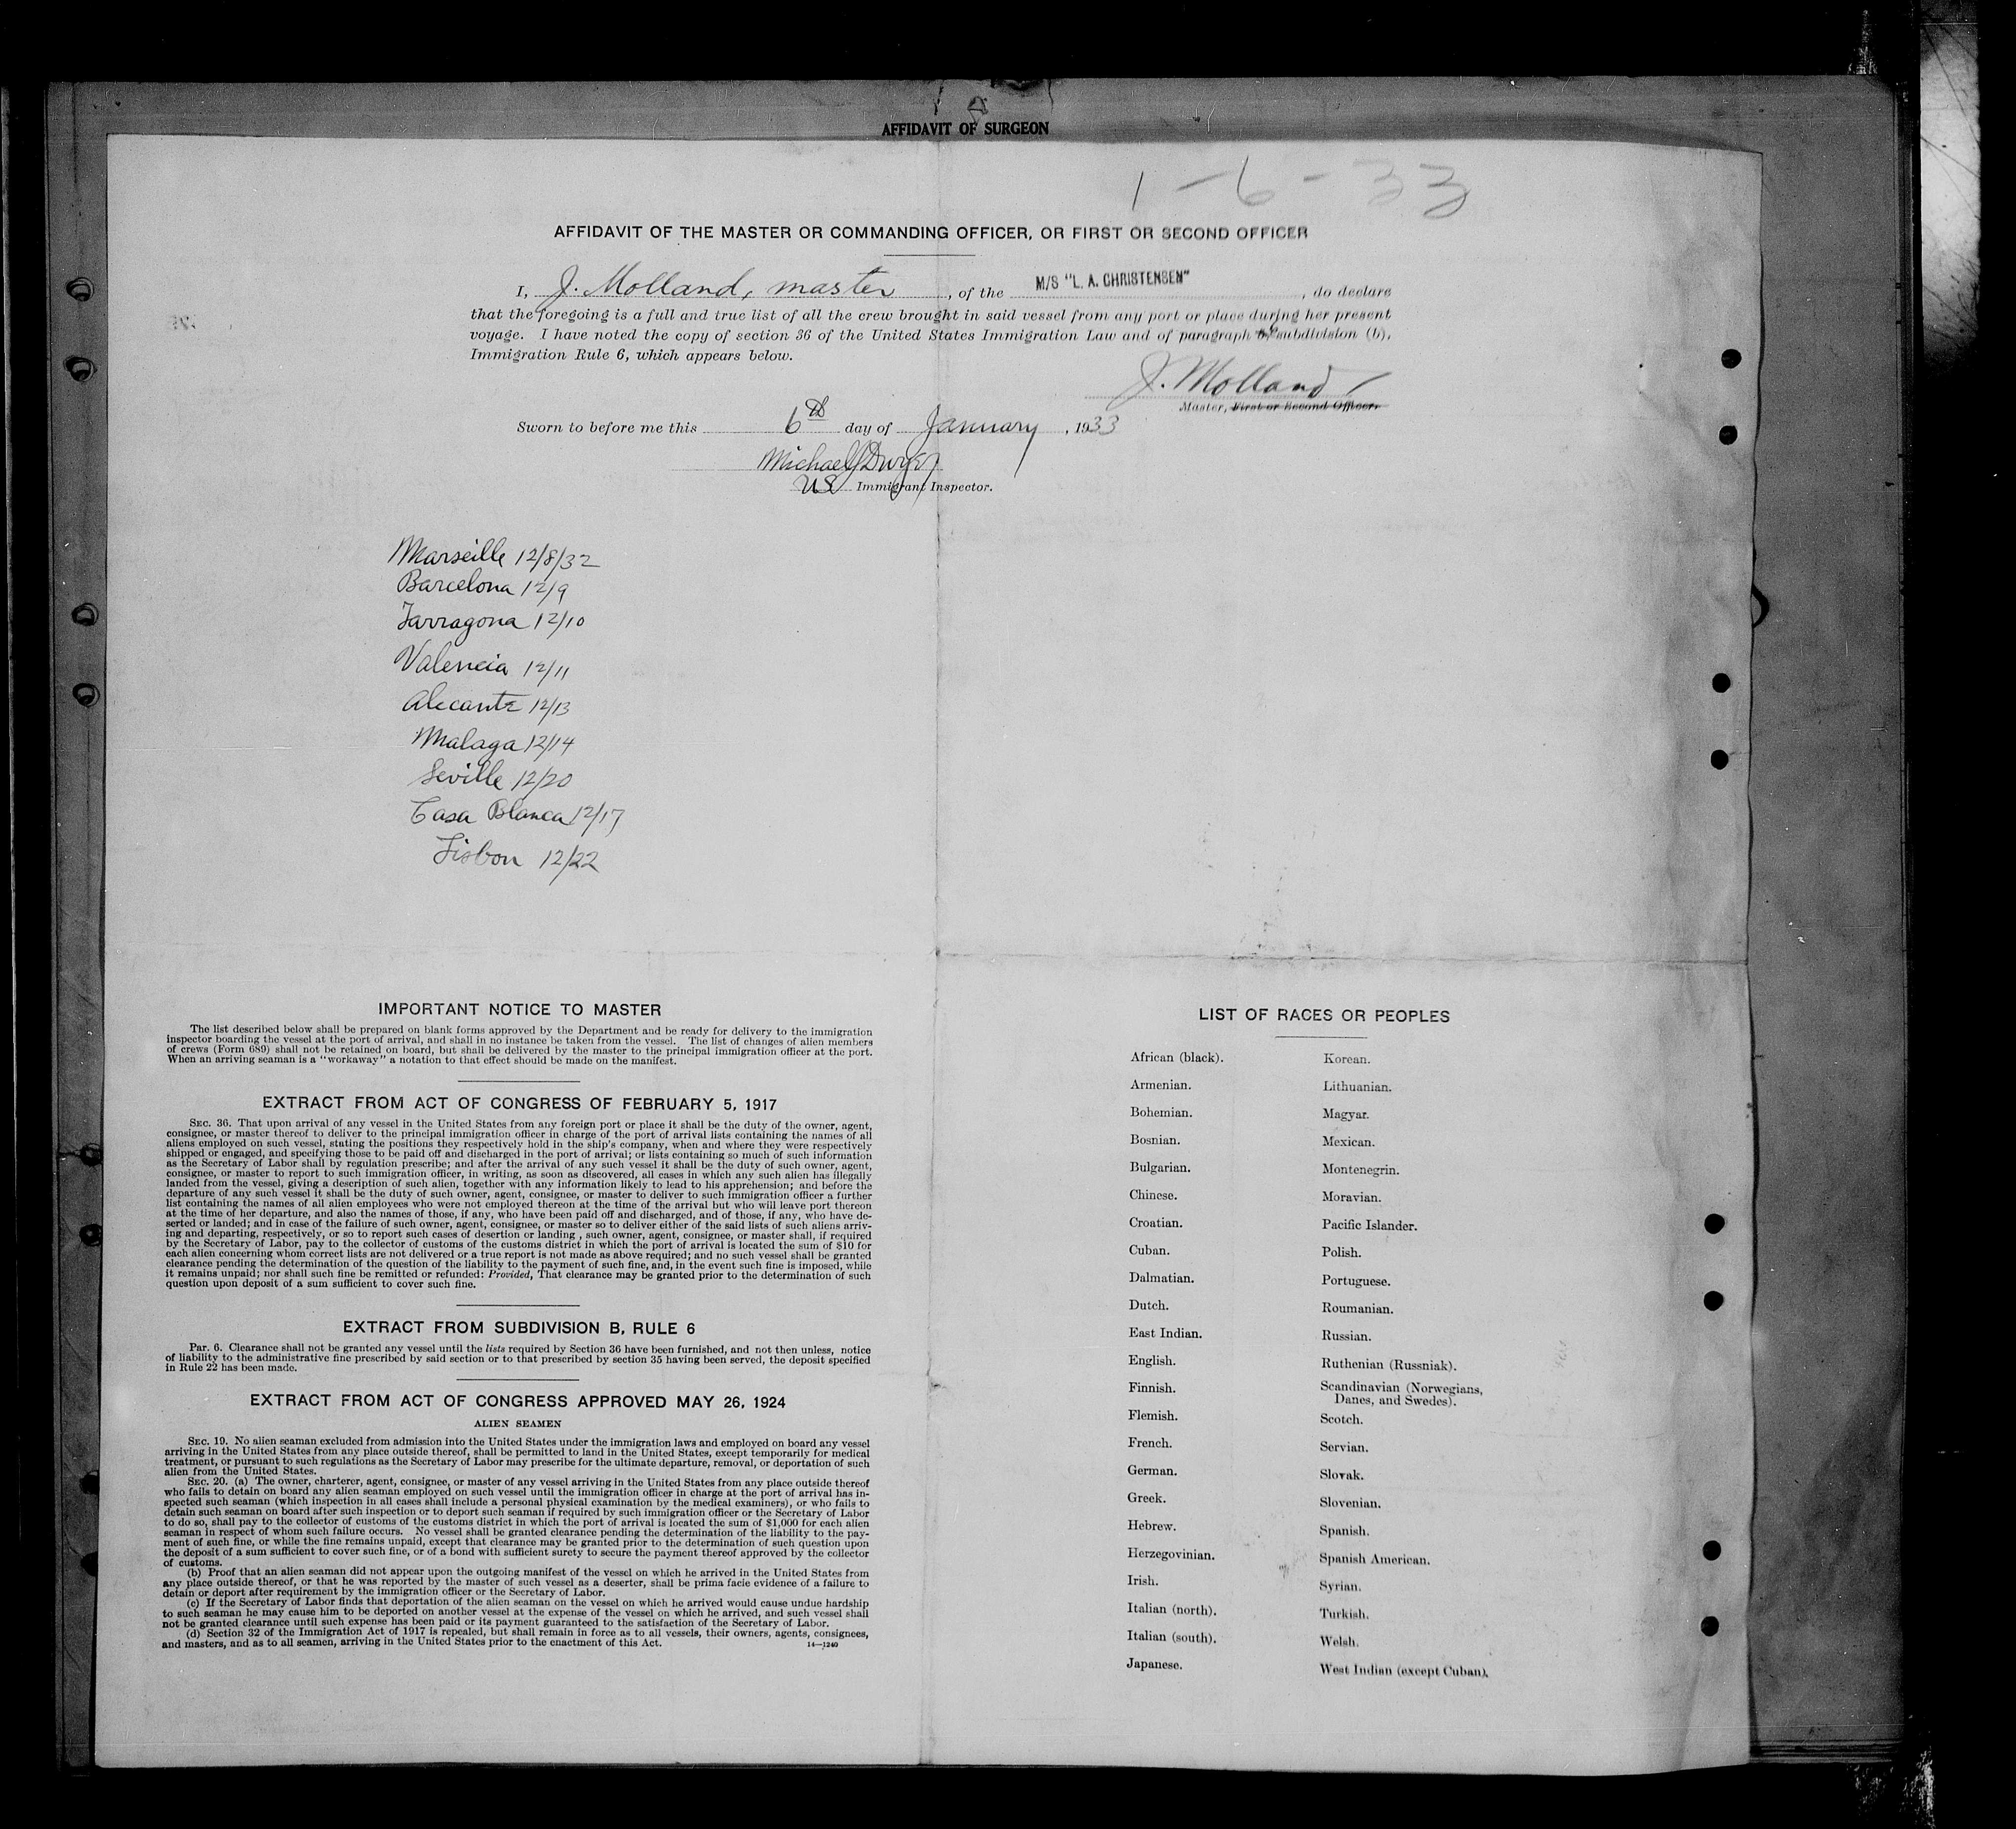 AFFIDAVIT OF SURGEON
1-6-33
AFFIDAVIT OF THE MASTER OR COMMANDING OFFICER, OR FIRST OR SECOND OFFICER
I, J. Molland, master, of the M/S "L. A. CHRISTENSEN", do declare
that the foregoing is a full and true list of all the crew brought in said vessel from any port or place during her present
voyage. I have noted the copy of section 36 of the United States Immigration Law and of paragraph 6, subdivision (b),
Immigration Rule 6, which appears below.
J. Molland
Master, First or Second Officer.
Sworn to before me this 6th day of January, 1933
Michael J Dwyer
US Immigrant Inspector.
Marseille 12/8/32
Barcelona 12/9
Tarragona 12/10
Valencia 12/11
Alecante 12/13
Malaga 12/14
Seville 12/20
Casa Blanca 12/17
Lisbon 12/22
IMPORTANT NOTICE TO MASTER
The list described below shall be prepared on blank forms approved by the Department and be ready for delivery to the immigration
inspector boarding the vessel at the port of arrival, and shall in no instance be taken from the vessel. The list of changes of alien members
of crews (Form 689) shall not be retained on board, but shall be delivered by the master to the principal immigration officer at the port.
When an arriving seaman is a "workaway" a notation to that effect should be made on the manifest.
EXTRACT FROM ACT OF CONGRESS OF FEBRUARY 5, 1917
SEC. 36. That upon arrival of any vessel in the United States from any foreign port or place it shall be the duty of the owner, agent,
consignee, or master thereof to deliver to the principal immigration officer in charge of the port of arrival lists containing the names of all
aliens employed on such vessel, stating the positions they respectively hold in the ship's company, when and where they were respectively
shipped or engaged, and specifying those to be paid off and discharged in the port of arrival; or lists containing so much of such information
as the Secretary of Labor shall by regulation prescribe; and after the arrival of any such vessel it shall be the duty of such owner, agent,
consignee, or master to report to such immigration officer, in writing, as soon as discovered, all cases in which any such alien has illegally
landed from the vessel, giving a description of such alien, together with any information likely to lead to his apprehension; and before the
departure of any such vessel it shall be the duty of such owner, agent, consignee, or master to deliver to such immigration officer a further
list containing the names of all alien employees who were not employed thereon at the time of the arrival but who will leave port thereon
at the time of her departure, and also the names of those, if any, who have been paid off and discharged, and of those, if any, who have de-
serted or landed; and in case of the failure of such owner, agent, consignee, or master so to deliver either of the said lists of such aliens arriv-
ing and departing, respectively, or so to report such cases of desertion or landing , such owner, agent, consignee, or master shall, if required
by the Secretary of Labor, pay to the collector of customs of the customs district in which the port of arrival is located the sum of $10 for
each alien concerning whom correct lists are not delivered or a true report is not made as above required; and no such vessel shall be granted
clearance pending the determination of the question of the liability to the payment of such fine, and, in the event such fine is imposed, while
it remains unpaid; nor shall such fine be remitted or refunded: Provided, That clearance may be granted prior to the determination of such
question upon deposit of a sum sufficient to cover such fine.
EXTRACT FROM SUBDIVISION B, RULE 6
Par. 6. Clearance shall not be granted any vessel until the lists required by Section 36 have been furnished, and not then unless, notice
of liability to the administrative fine prescribed by said section or to that prescribed by section 35 having been served, the deposit specified
in Rule 22 has been made.
EXTRACT FROM ACT OF CONGRESS APPROVED MAY 26, 1924
ALIEN SEAMEN
SEC. 19. No alien seaman excluded from admission into the United States under the immigration laws and employed on board any vessel
arriving in the United States from any place outside thereof, shall be permitted to land in the United States, except temporarily for medical
treatment, or pursuant to such regulations as the Secretary of Labor may prescribe for the ultimate departure, removal, or deportation of such
alien from the United States.
SEC. 20. (a) The owner, charterer, agent, consignee, or master of any vessel arriving in the United States from any place outside thereof
who fails to detain on board any alien seaman employed on such vessel until the immigration officer in charge at the port of arrival has in-
spected such seaman (which inspection in all cases shall include a personal physical examination by the medical examiners), or who fails to
detain such seaman on board after such inspection or to deport such seaman if required by such immigration officer or the Secretary of Labor
to do so, shall pay to the collector of customs of the customs district in which the port of arrival is located the sum of $1,000 for each alien
seaman in respect of whom such failure occurs. No vessel shall be granted clearance pending the determination of the liability to the pay-
ment of such fine, or while the fine remains unpaid, except that clearance may be granted prior to the determination of such question upon
the deposit of a sum sufficient to cover such fine, or of a bond with sufficient surety to secure the payment thereof approved by the collector
of customs.
(b) Proof that an alien seaman did not appear upon the outgoing manifest of the vessel on which he arrived in the United States from
any place outside thereof, or that he was reported by the master of such vessel as a deserter, shall be prima facie evidence of a failure to
detain or deport after requirement by the immigration officer or the Secretary of Labor.
(c) If the Secretary of Labor finds that deportation of the alien seaman on the vessel on which he arrived would cause undue hardship
to such seaman he may cause him to be deported on another vessel at the expense of the vessel on which he arrived, and such vessel shall
not be granted clearance until such expense has been paid or its payment guaranteed to the satisfaction of the Secretary of Labor.
(d) Section 32 of the Immigration Act of 1917 is repealed, but shall remain in force as to all vessels, their owners, agents, consignees,
and masters, and as to all seamen, arriving in the United States prior to the enactment of this Act.
14—1240
LIST OF RACES OR PEOPLES
African (black).
Armenian.
Bohemian.
Bosnian.
Bulgarian.
Chinese.
Croatian.
Cuban.
Dalmatian.
Dutch.
East Indian.
English.
Finnish.
Flemish.
French.
German.
Greek.
Hebrew.
Herzegovinian.
Irish.
Italian (north).
Italian (south).
Japanese.
Korean.
Lithuanian.
Magyar.
Mexican.
Montenegrin.
Moravian.
Pacific Islander.
Polish.
Portuguese.
Roumanian.
Russian.
Ruthenian (Russniak).
Scandinavian (Norwegians,
Danes, and Swedes).
Scotch.
Servian.
Slovak.
Slovenian.
Spanish.
Spanish American.
Syrian.
Turkish.
Welsh.
West Indian (except Cuban).